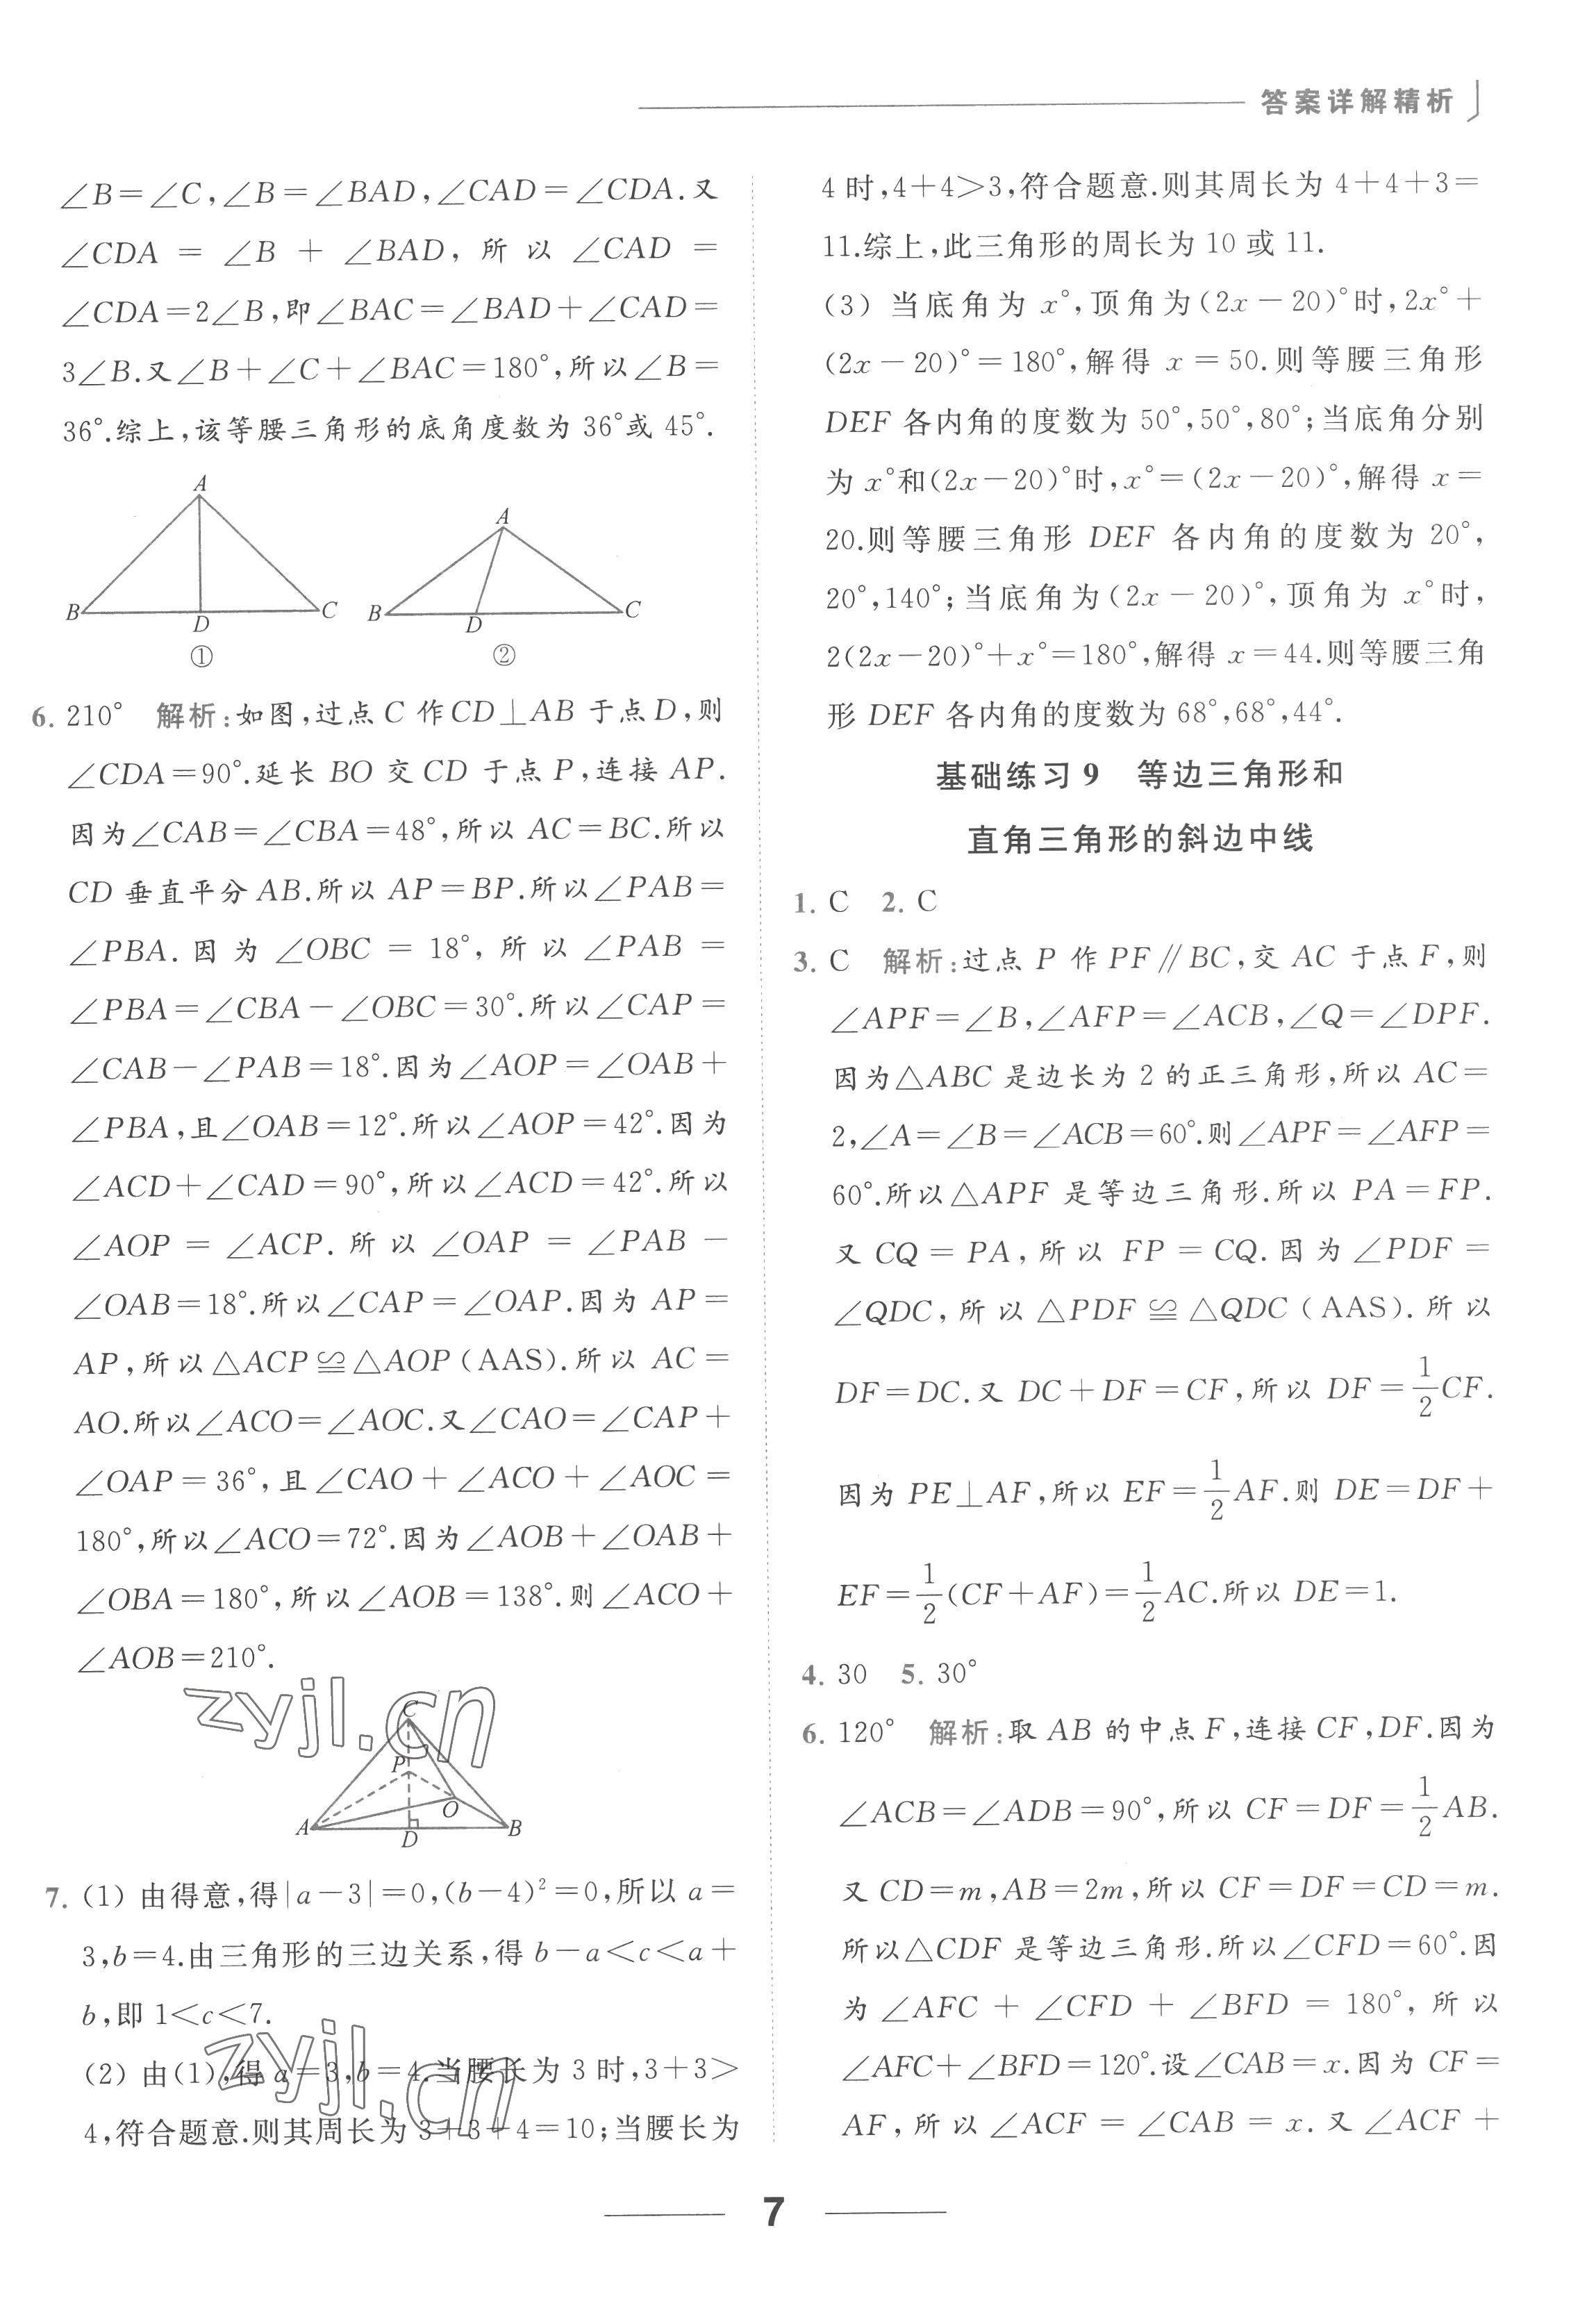 答案详解精析
∠B=∠C,∠B=∠BAD,∠CAD=∠CDA.又
∠CDA = ∠B + ∠BAD, 所以 ∠CAD =
∠CDA=2∠B,即∠BAC=∠BAD+∠CAD=
3∠B.又∠B+∠C+∠BAC=180°,所以∠B=
36°.综上,该等腰三角形的底角度数为36°或45°.
A
B
D
C
①
A
B
D
C
②
6. 210° 解析:如图,过点C作CD⊥AB于点D,则
∠CDA=90°.延长BO交CD于点P,连接AP.
因为∠CAB=∠CBA=48°,所以AC=BC.所以
CD垂直平分AB.所以AP=BP.所以∠PAB=
∠PBA.因为∠OBC = 18°, 所以∠PAB =
∠PBA=∠CBA-∠OBC=30°.所以∠CAP=
∠CAB-∠PAB=18°.因为∠AOP=∠OAB+
∠PBA,且∠OAB=12°.所以∠AOP=42°.因为
∠ACD+∠CAD=90°,所以∠ACD=42°.所以
∠AOP = ∠ACP. 所以∠OAP = ∠PAB -
∠OAB=18°.所以∠CAP=∠OAP.因为AP=
AP,所以△ACP≌△AOP(AAS).所以AC=
AO.所以∠ACO=∠AOC.又∠CAO=∠CAP+
∠OAP=36°,且∠CAO+∠ACO+∠AOC=
180°,所以∠ACO=72°.因为∠AOB+∠OAB+
∠OBA=180°,所以∠AOB=138°.则∠ACO+
∠AOB=210°.
zyjl.cn
C
P
O
A
D
B
7. (1) 由得意,得|a-3|=0,(b-4)²=0,所以a=
3,b=4.由三角形的三边关系,得b-a<c<a+
b,即1<c<7.
(2) 由(1),得a=3,b=4.当腰长为3时,3+3>
4,符合题意.则其周长为3+3+4=10;当腰长为
zyjl.cn
4时,4+4>3,符合题意.则其周长为4+4+3=
11.综上,此三角形的周长为10或11.
(3) 当底角为x°,顶角为(2x-20)°时,2x°+
(2x-20)°=180°,解得x=50.则等腰三角形
DEF各内角的度数为50°,50°,80°;当底角分别
为x°和(2x-20)°时,x°=(2x-20)°,解得x=
20.则等腰三角形DEF各内角的度数为20°,
20°,140°;当底角为(2x-20)°,顶角为x°时,
2(2x-20)°+x°=180°,解得x=44.则等腰三角
形DEF各内角的度数为68°,68°,44°.
基础练习9 等边三角形和
直角三角形的斜边中线
1. C 2. C
3. C 解析:过点P作PF∥BC,交AC于点F,则
∠APF=∠B,∠AFP=∠ACB,∠Q=∠DPF.
因为△ABC是边长为2的正三角形,所以AC=
2,∠A=∠B=∠ACB=60°.则∠APF=∠AFP=
60°.所以△APF是等边三角形.所以PA=FP.
又CQ=PA,所以FP=CQ.因为∠PDF=
∠QDC,所以△PDF≌△QDC(AAS).所以
DF=DC.又DC+DF=CF,所以DF=1/2CF.
因为PE⊥AF,所以EF=1/2AF.则DE=DF+
EF=1/2(CF+AF)=1/2AC.所以DE=1.
4. 30 5. 30°
6. 120° 解析:取AB的中点F,连接CF,DF.因为
∠ACB=∠ADB=90°,所以CF=DF=1/2AB.
又CD=m,AB=2m,所以CF=DF=CD=m.
所以△CDF是等边三角形.所以∠CFD=60°.因
为∠AFC + ∠CFD + ∠BFD = 180°, 所以
∠AFC+∠BFD=120°.设∠CAB=x.因为CF=
AF,所以∠ACF = ∠CAB = x. 又∠ACF +
7